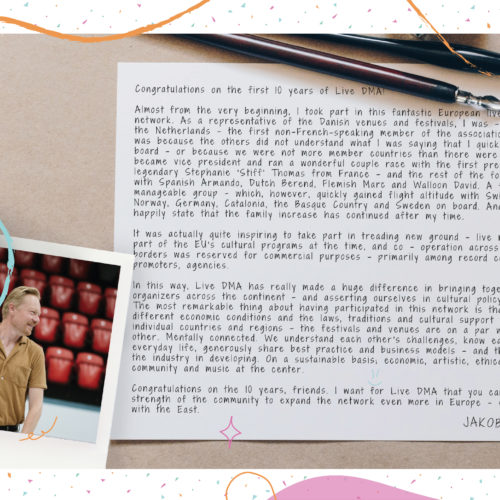 Congratulations on the first 10 years of Live DMA!
Almost from the very beginning, I took part in this fantastic European live
network. As a representative of the Danish venues and festivals, I was -
the Netherlands - the first non-French-speaking member of the associatio
was because the others did not understand what I was saying that I quick
board - or because we were not more member countries than there were
became vice president and ran a wonderful couple race with the first pres
legendary Stephanie 'Stiff' Thomas from France - and the rest of the fo
with Spanish Armando, Dutch Berend, Flemish Marc and Walloon David. A
manageable group - which, however, quickly gained flight altitude with Swi
Norway, Germany, Catalonia, the Basque Country and Sweden on board. An
happily state that the family increase has continued after my time.
It was actually quite inspiring to take part in treading new ground - live m
part of the EU's cultural programs at the time, and co - operation across
borders was reserved for commercial purposes - primarily among record co
promoters, agencies.
In this way, Live DMA has really made a huge difference in bringing toge
organizers across the continent - and asserting ourselves in cultural policy
The most remarkable thing about having participated in this network is tha
different economic conditions and the laws, traditions and cultural support
individual countries and regions - the festivals and venues are on a par w
other. Mentally connected. We understand each other's challenges, know ea
everyday life, generously share best practice and business models - and th
the industry in developing. On a sustainable basis, economic, artistic, ethica
community and music at the center.
Congratulations on the 10 years, friends. I want for Live DMA that you ca
strength of the community to expand the network even more in Europe -
with the East.
JAKOB